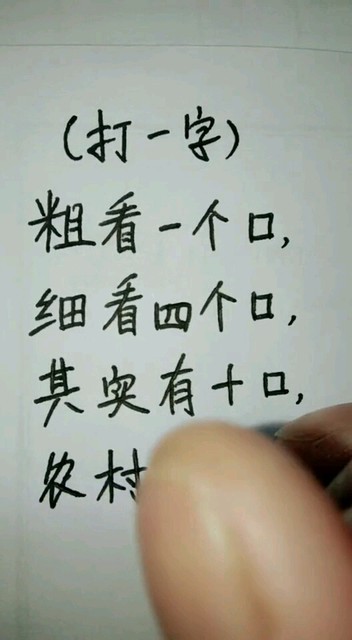 (打一字)
粗看一个口,
细看四个口,
其实有十口,
农村